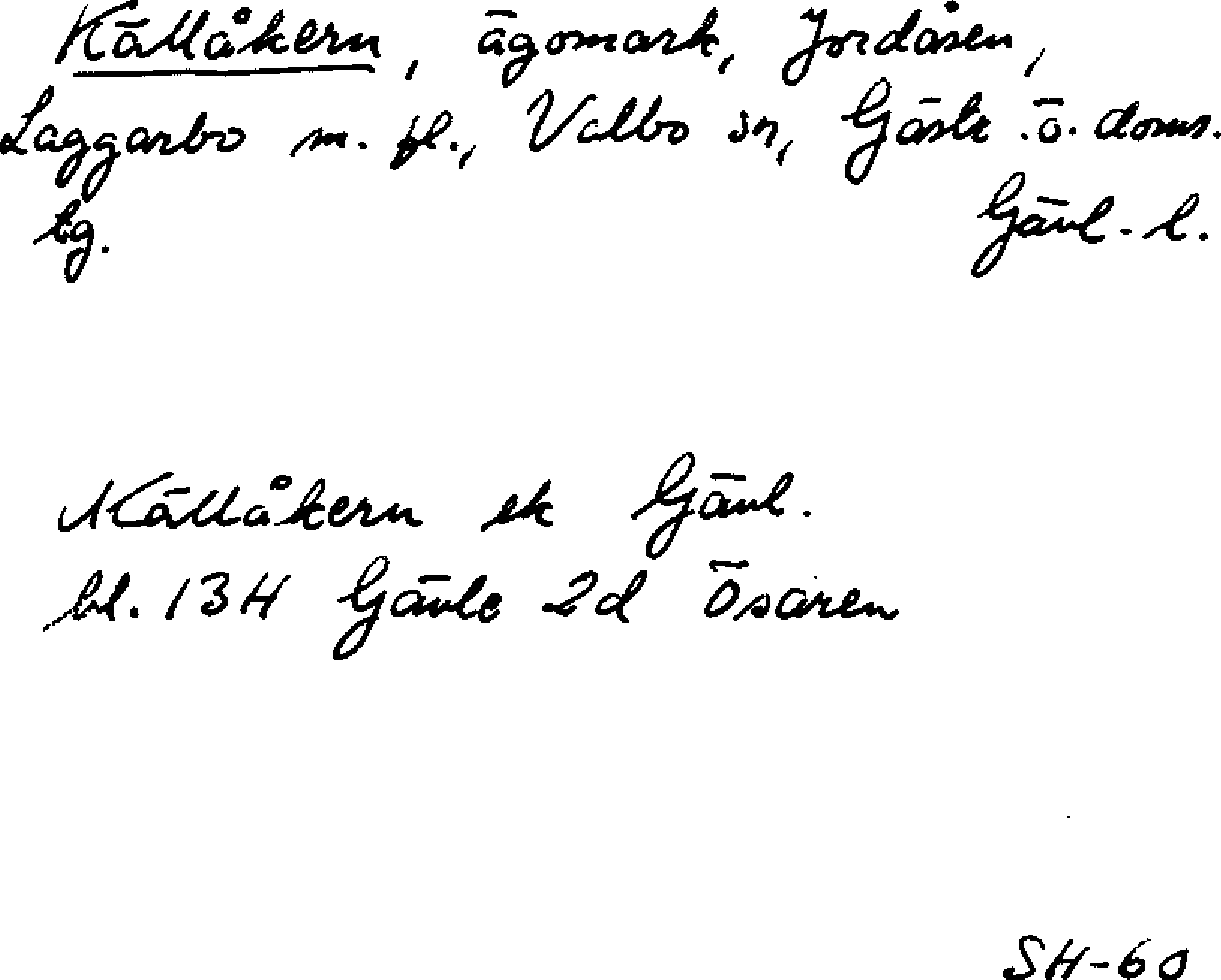 Källåkern, ägomark, Jordåsen,
Laggarbo m. fl., Valbo sn, Gästr. ö. doms.
tg. Gävl. l.
Källåkern ek Gävl.
bl. 13H Gävle 2d Ösaren
SH-60